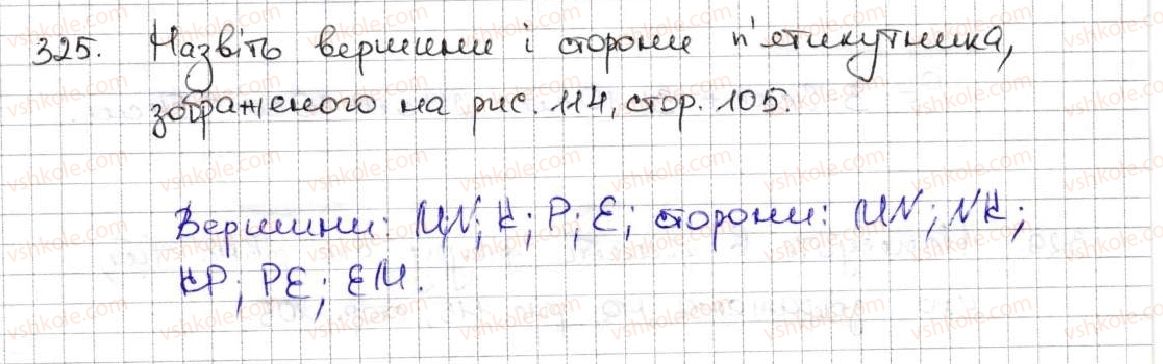 325. Назвіть вершини і сторони п'ятикутника,
зображеного на рис. 114, стор. 105.
Вершини: M; N; K; P; E; сторони: MN; NK;
KP; PE; EM.